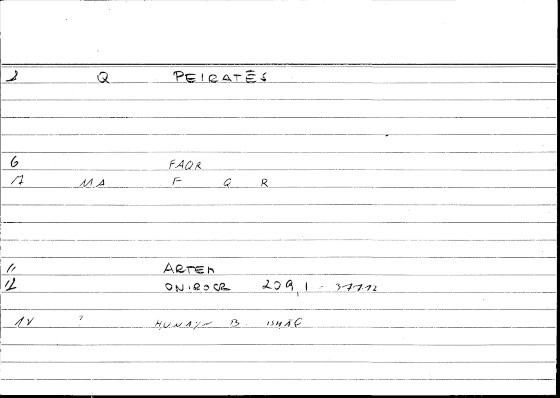 2 Q PEIRATÊS
6 FAQR
17 MA F Q R
11 ARTEM
12 ONIROCR 209,1 - 377,12
14 ? HUNAYN B.